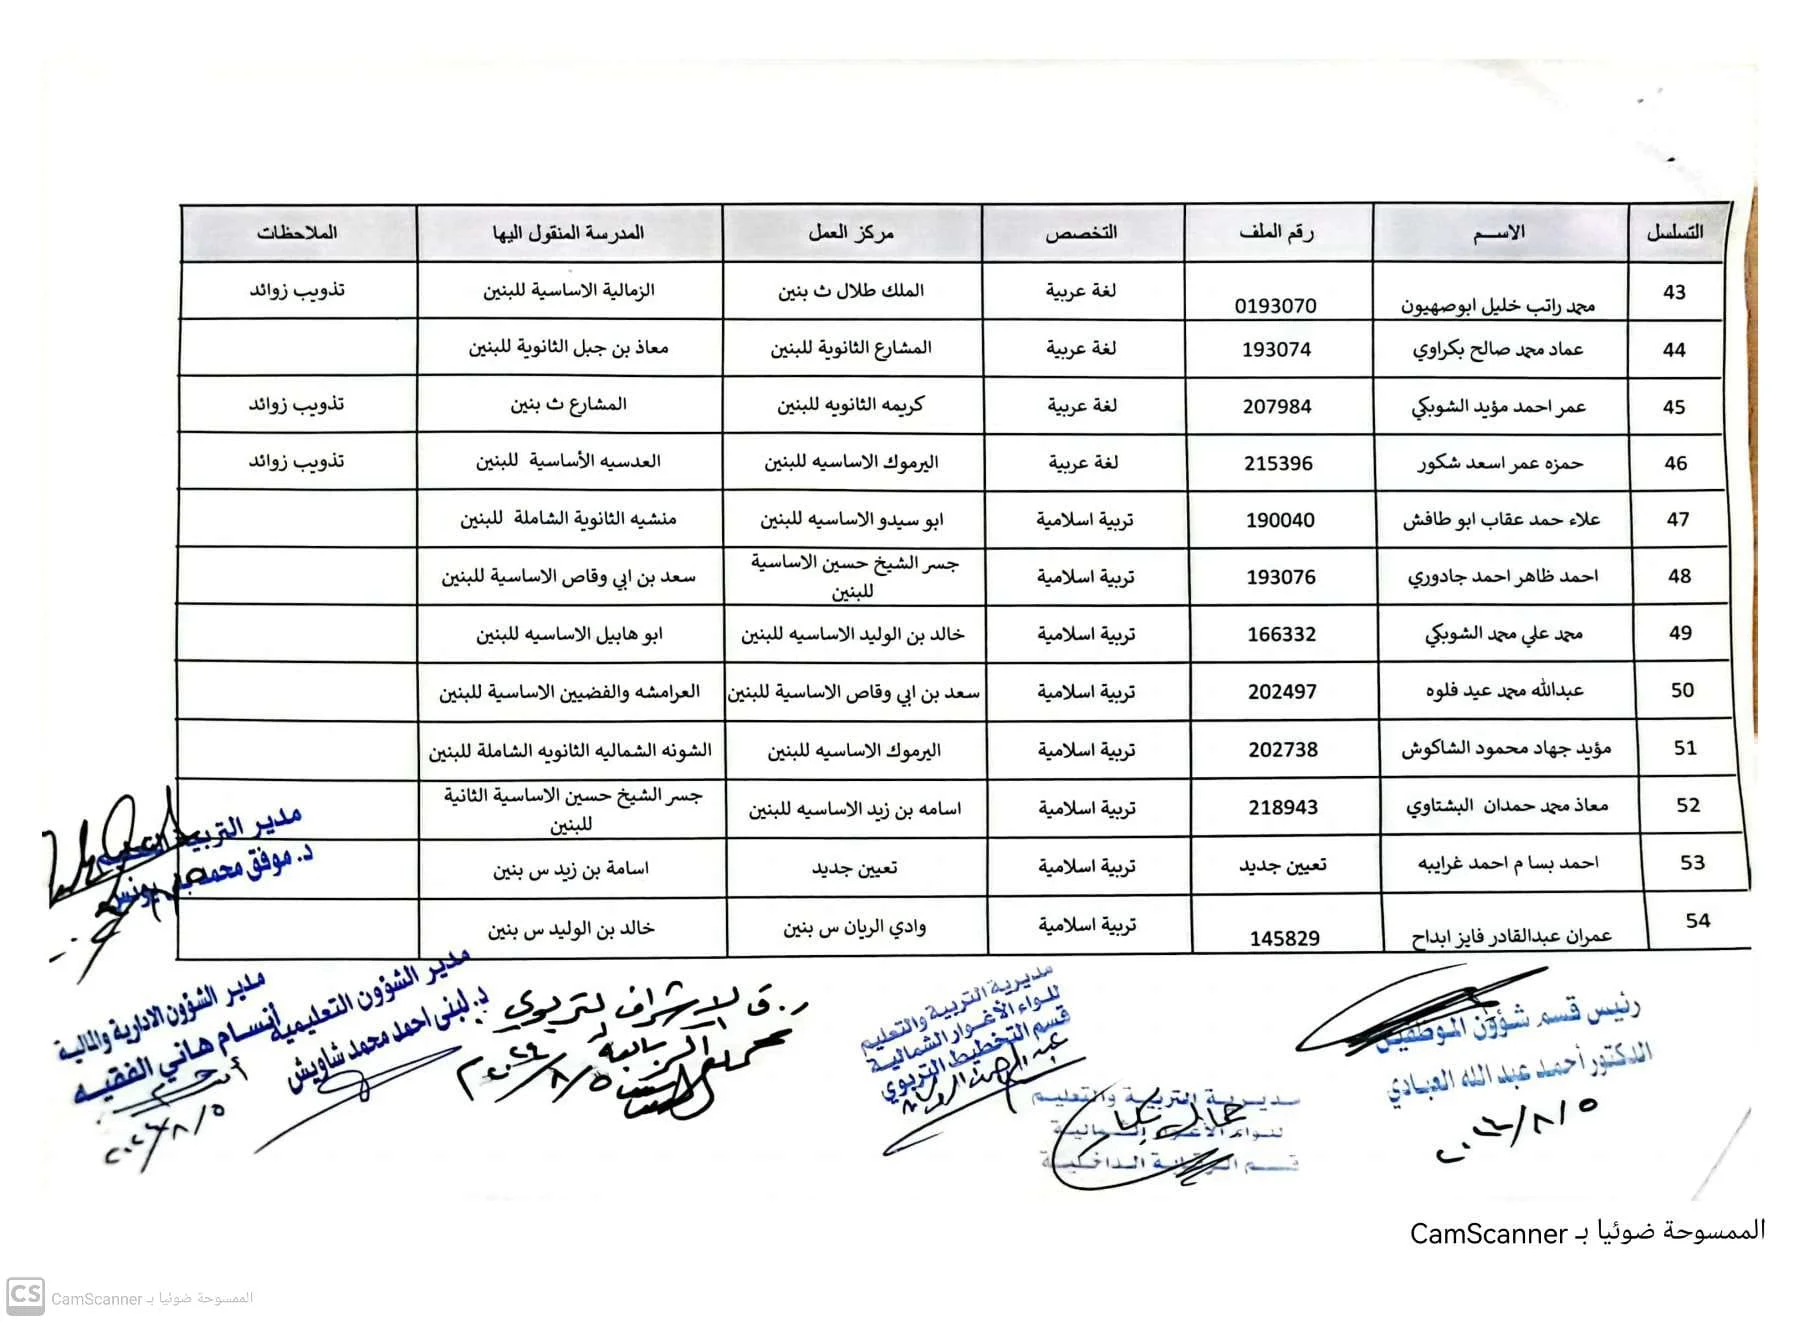 التسلسل الاســـم رقم الملف التخصص مركز العمل المدرسة المنقول اليها الملاحظات
43 محمد راتب خليل ابوصهيون 0193070 لغة عربية الملك طلال ث بنين الزمالية الاساسية للبنين تذويب زوائد
44 عماد محمد صالح بكراوي 193074 لغة عربية المشارع الثانوية للبنين معاذ بن جبل الثانوية للبنين
45 عمر احمد مؤيد الشوبكي 207984 لغة عربية كريمه الثانويه للبنين المشارع ث بنين تذويب زوائد
46 حمزه عمر اسعد شكور 215396 لغة عربية اليرموك الاساسيه للبنين العدسيه الأساسية للبنين تذويب زوائد
47 علاء حمد عقاب ابو طافش 190040 تربية اسلامية ابو سيدو الاساسيه للبنين منشيه الثانوية الشاملة للبنين
48 احمد ظاهر احمد جادوري 193076 تربية اسلامية جسر الشيخ حسين الاساسية للبنين سعد بن ابي وقاص الاساسية للبنين
49 محمد علي محمد الشوبكي 166332 تربية اسلامية خالد بن الوليد الاساسيه للبنين ابو هابيل الاساسيه للبنين
50 عبدالله محمد عيد فلوه 202497 تربية اسلامية سعد بن ابي وقاص الاساسية للبنين العرامشه والفضيين الاساسية للبنين
51 مؤيد جهاد محمود الشاكوش 202738 تربية اسلامية اليرموك الاساسيه للبنين الشونه الشماليه الثانويه الشاملة للبنين
52 معاذ محمد حمدان البشتاوي 218943 تربية اسلامية اسامه بن زيد الاساسيه للبنين جسر الشيخ حسين الاساسية الثانية للبنين
53 احمد بسام احمد غرايبه تعيين جديد تربية اسلامية تعيين جديد اسامة بن زيد س بنين
54 عمران عبدالقادر فايز ابداح 145829 تربية اسلامية وادي الريان س بنين خالد بن الوليد س بنين
مدير التربية
د. موفق محمد
رئيس قسم شؤون الموظفين
الدكتور أحمد عبد الله العبادي
٢٠٢٤/٨/٥
مديرية التربية والتعليم
للواء الأغوار الشمالية
قسم التخطيط التربوي
مديرية التربية والتعليم
للواء الأغوار الشمالية
قسم الرقابة الداخلية
ر.ق الإشراف التربوي
٢٠٢٤/٨/٥
مدير الشؤون التعليمية
د. لبنى احمد محمد شاويش
مدير الشؤون الادارية والمالية
أنسام هاني الفقيه
٢٠٢٤/٨/٥
الممسوحة ضوئيا بـ CamScanner
CS الممسوحة ضوئيا بـ CamScanner